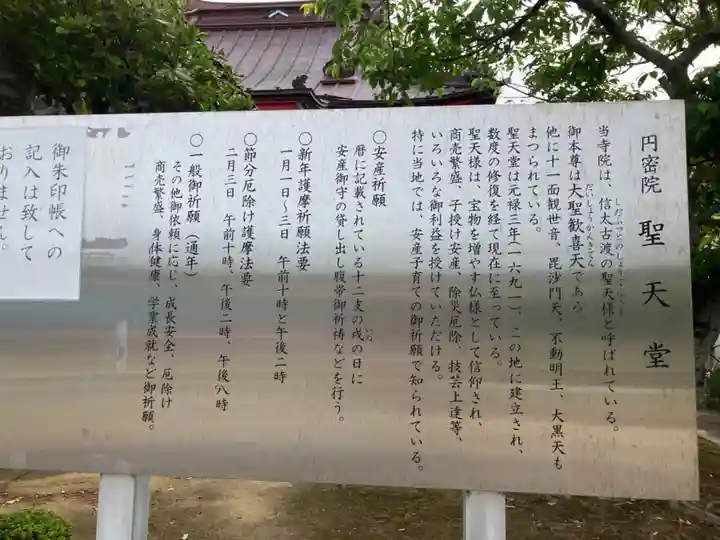 円密院 聖天堂
当寺院は、信太古渡の聖天様と呼ばれている。
御本尊は大聖歓喜天であら
だいしょうかんきてん
他に十一面観世音、毘沙門天、不動明王、大黒天も
まつられている。
聖天堂は元禄三年(一六九一)、この地に建立され、
数度の修復を経て現在に至っている。
聖天様は、宝物を増やす仏様として信仰され、
商売繁盛、子授け安産、除災厄除、技芸上達等、
いろいろな御利益を授けていただける。
特に当地では、安産子育ての御祈願で知られている。
〇安産祈願
暦に記載されている十二支の戌の日に
いぬ
安産御守の貸し出し腹帯御祈祷などを行う。
〇新年護摩祈願法要
一月一日〜三日 午前十時と午後二時
〇節分厄除け護摩法要
二月三日 午前十時、午後二時、午後八時
〇一般御祈願(通年)
その他御依頼に応じ、成長安全、厄除け
商売繁盛、身体健康、学業成就など御祈願。
御朱印帳への
記入は致して
おりません。